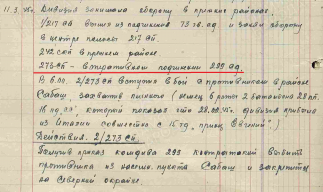 11.3.45г. Дивизия занимала оборону в прежнем районе,
1/217 сп вышел из подчинения 73 гв. сд и занял оборону
в центре полосы 217 сп
242 сп в прежнем районе
273 сп - в оперативном подчинении 299 сд.
2/273 сп вступил в бой с противником в районе
Сабаш, захватив пленного (немец в роте 2 батальона 28 пп
который показал что дивизия прибыла
из Италии совместно с 16 тд. "принц Евгений")
Действия. 2/273 сп
Получив приказ комдива 299 контратакой выбить
противника из насел. пункта Сабаш и закрепиться
на северной окраине